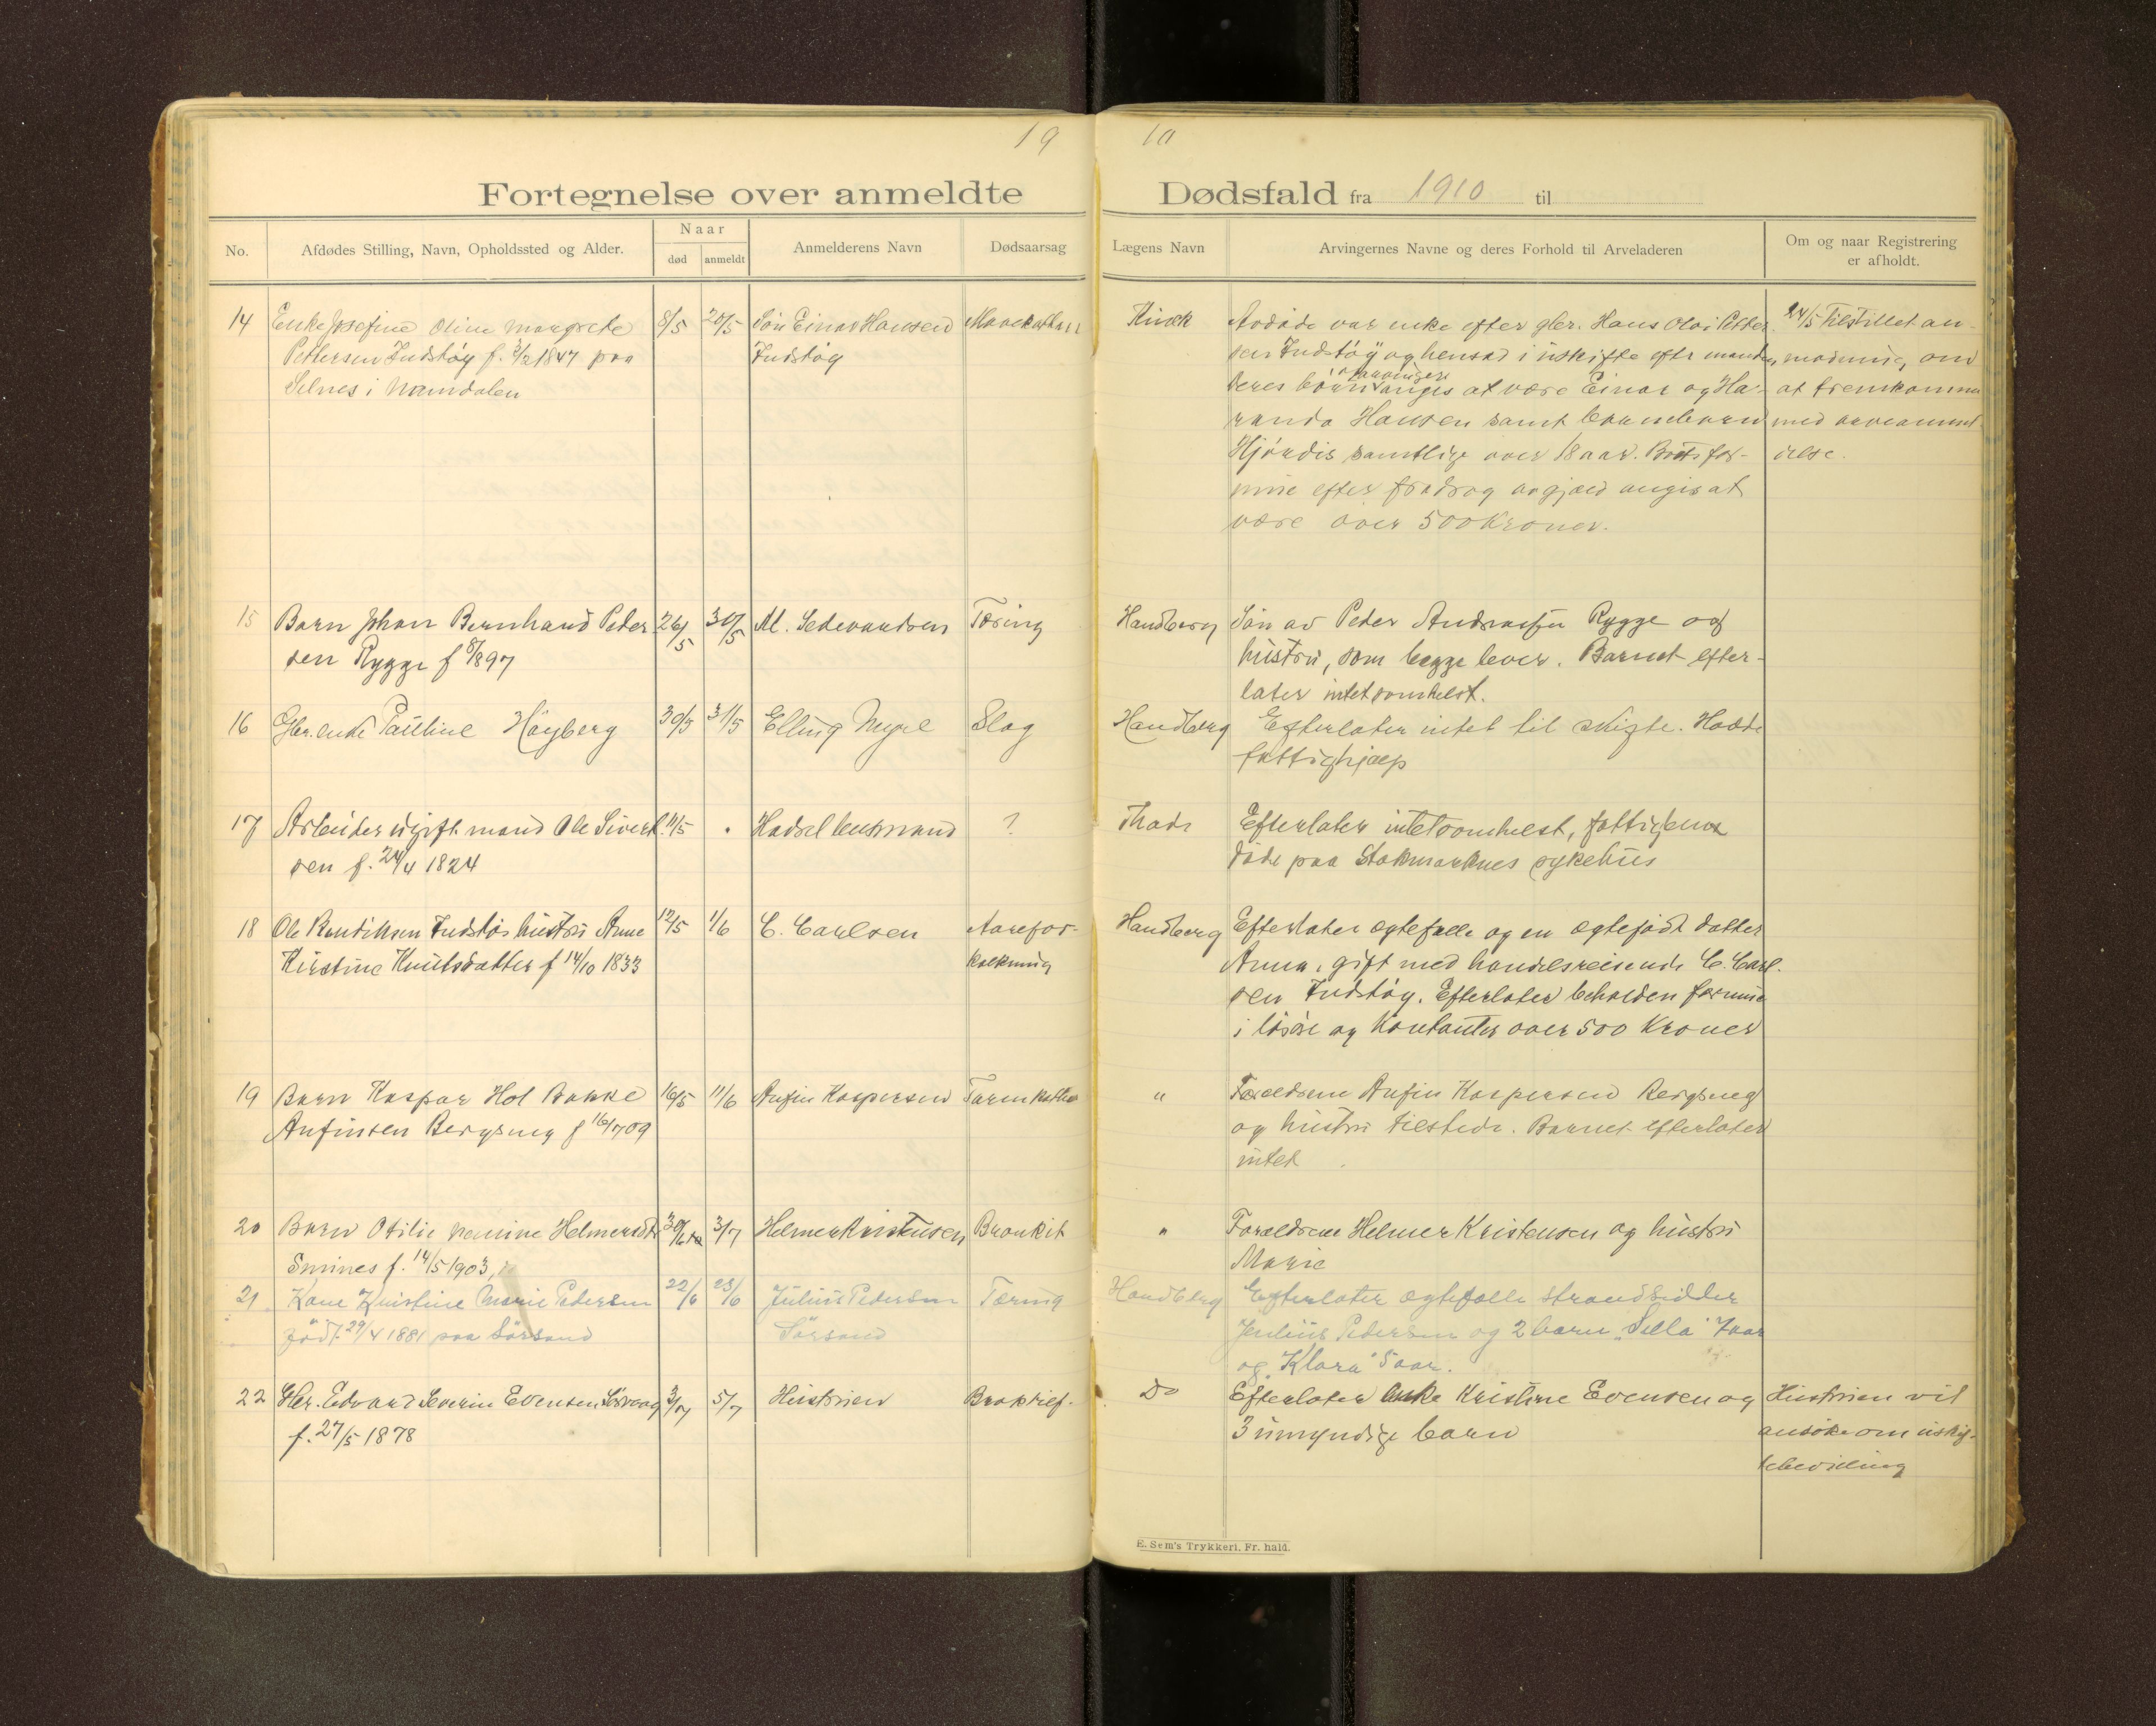 19 10
Fortegnelse over anmeldte Dødsfald fra 1910 til
No. Afdødes Stilling, Navn, Opholdssted og Alder. Naar død anmeldt Anmelderens Navn Dødsaarsag Lægens Navn Arvingernes Navne og deres Forhold til Arveladeren Om og naar Registrering er afholdt.
14 Enke Josefine Oline Margrete 8/5 20/5 Søn Einar Hansen
Pettersen Indstøy f. 3/2 1847 paa Indstøy
Selnes i Namdalen
Avdøde var enke efter gbr. Hans Olai Petter
sen Indstøy og hensad i uskifte efter manden,
deres børn angis at være Einar og Ha-
randa Hansen samt barnebarn
Hjørdis samtlige over 18 aar. Bruttofor-
mue efter fradrag av gjæld angis at
være over 500 Kroner.
24/5 Tilstillet an-
modning, om
at fremkomme
med arveanmel
delse.
15 Barn Johan Bernhard Peder 26/5 30/5 M. Sedevardsen Tæring Handberg Søn av Peder Andreassen Rygge og
sen Rygge f 8/8 97 hustru, som begge lever. Barnet efter-
later intetsomhelst.
16 Gbr. enke Pauline Høyberg 30/5 31/5 Elling Myre Slag Handberg Efterlater intet til skifte. Hadde
fattighjælp
17 Arbeider ugift mand Ole Sivert 11/5 " Hadsel lensmand ? Thode Efterlater intetsomhelst, fattiglem
sen f. 24/4 1824 døde paa Stokmarknes sykehus
18 Ole Bendiksen Indstøs hustru Anne 12/5 1/6 C. Carlsen Aarefor- Handberg Efterlater egtefælle og en egtefødt datter
Kirstine Knutsdatter f 14/10 1833 kalkning Anna, gift med handelsreisende C. Carl-
sen Indstøy. Efterlater beholden formue
i løsøre og Kontanter over 500 Kroner
19 Barn Kaspar Hol Bakke 16/5 11/6 Anfin Kaspersen Tarmkatar " Forældrene Anfin Kaspersen Bergsmyg
Anfinsen Bergsmyg f 16/7 09 og hustru tilstede. Barnet efterlater
intet
20 Barn Otilie Nanine Helmersdtr 30/6 3/7 Helmer Kristensen Bronkit " Forældrene Helmer Kristensen og hustru
f. 14/5 1903, Marie
21 Kone Kristine Marie Pedersen 22/6 23/6 Julius Pedersen Tæring Handberg Efterlater egtefælle strandsidder
født 29/4 1881 paa Sørsand Sørsand Julius Pedersen og 2 barn "Sella" 7 aar
og "Klara" 5 aar.
22 Gbr. Edvard Severin Evensen Sørvaag 3/7 5/7 Hustruen Do Efterlater enke Kristine Evensen og Hustruen vil
f. 27/5 1878 3 umyndige barn ansøke om uskif-
tebevilling
E. Sem's Trykkeri, Fr. hald.